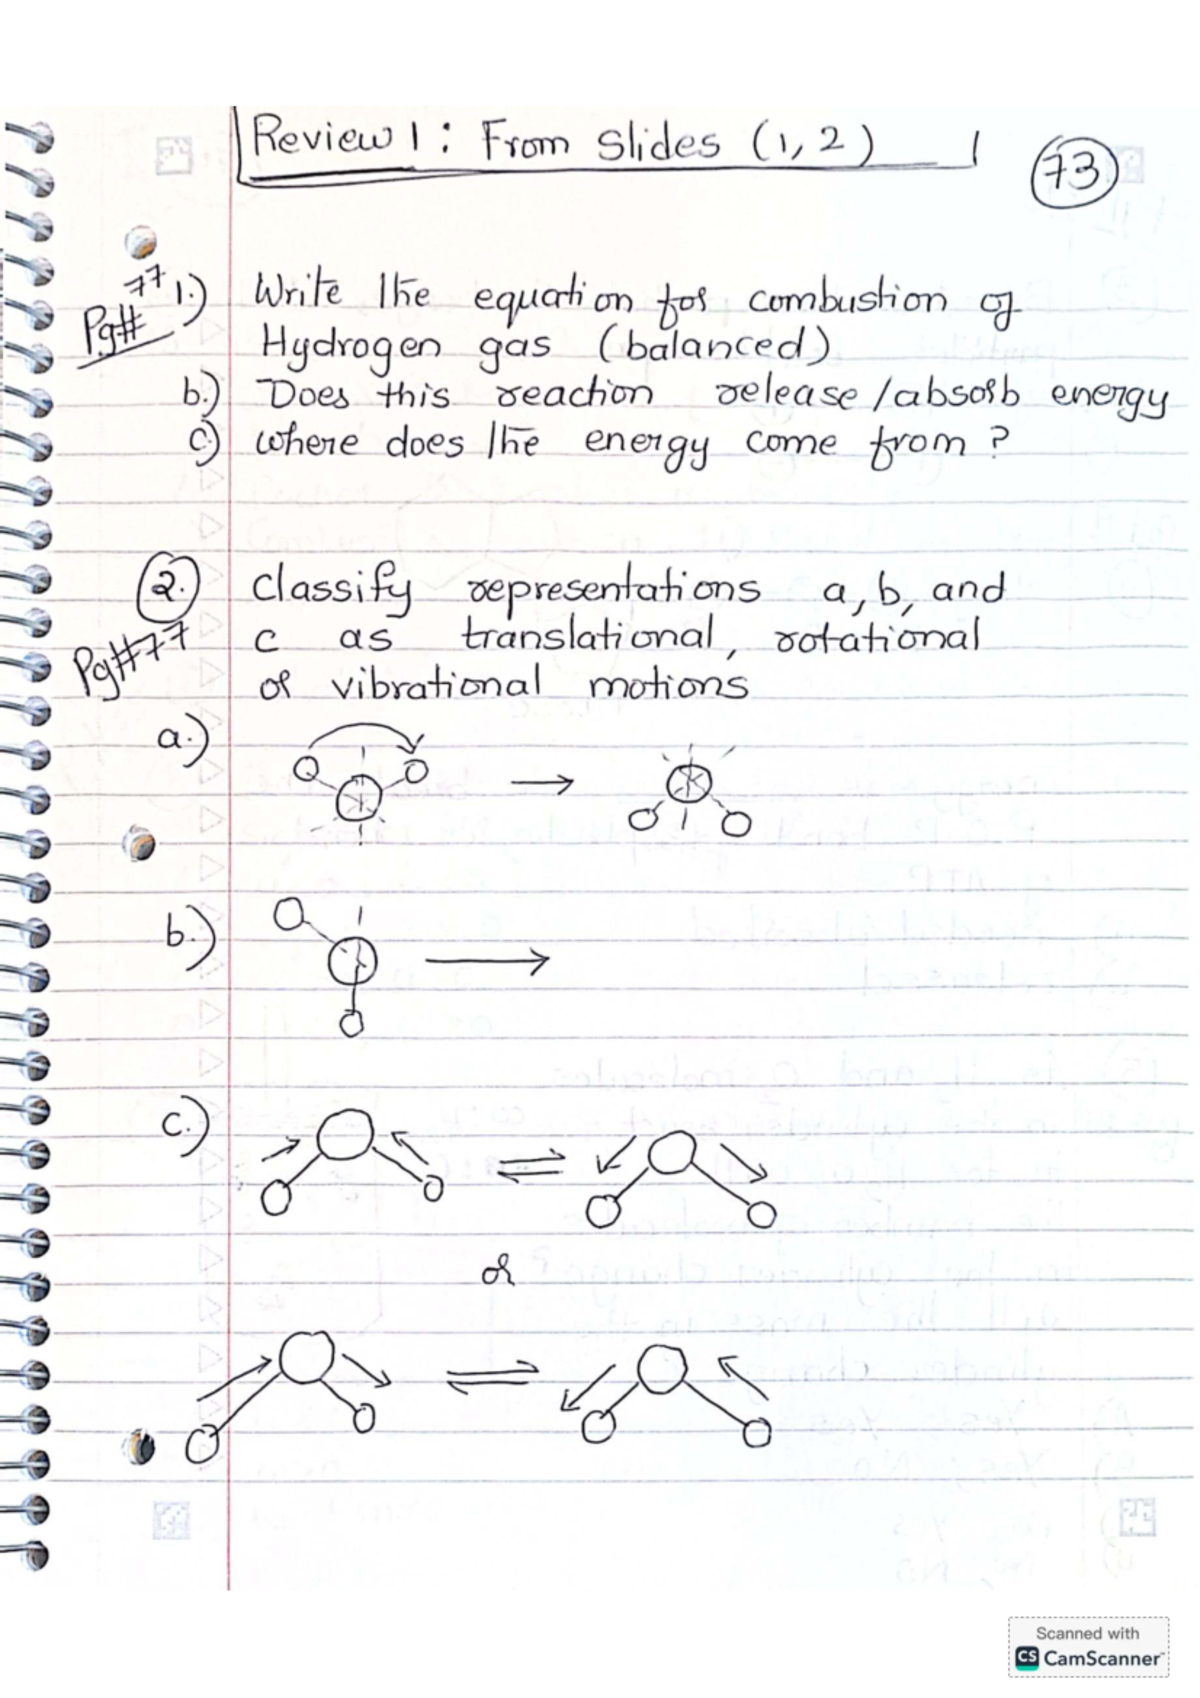 Review 1: From slides (1, 2)
73
Pg# 77
1.) Write the equation for combustion of
Hydrogen gas (balanced)
b.) Does this reaction release/absorb energy
c) where does the energy come from?
2. Classify representations a, b, and
Pg#77
c as translational, rotational
or vibrational motions
a.)
b.)
c.)
or
Scanned with
CS CamScanner